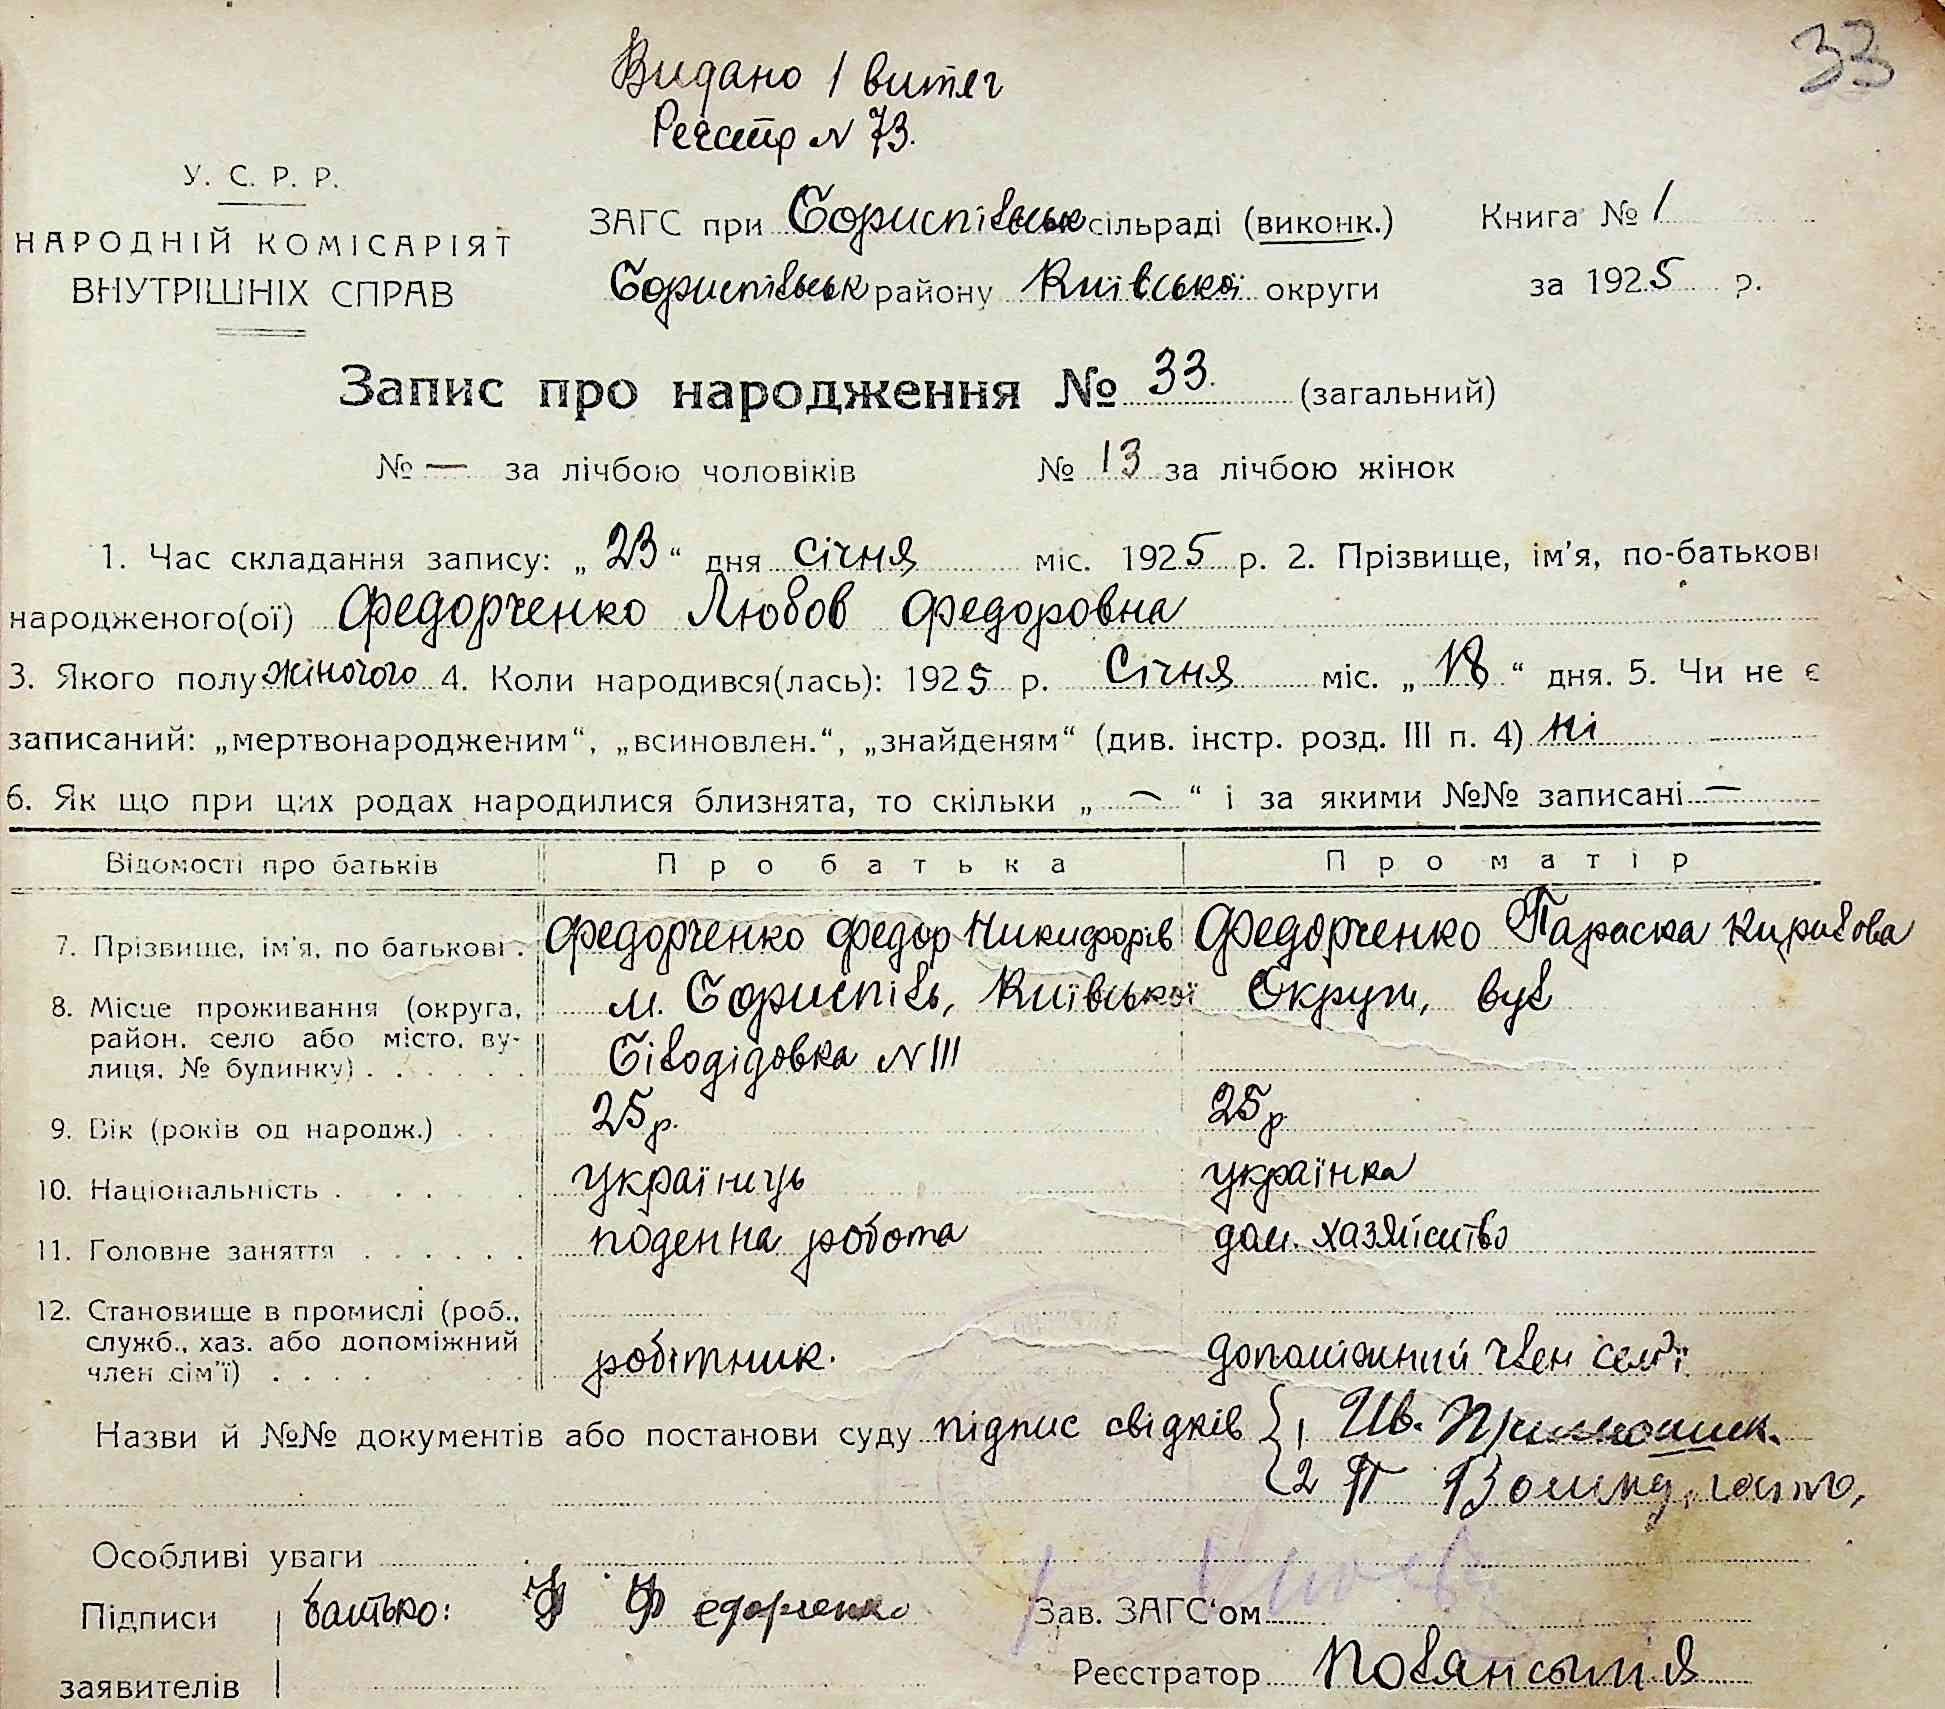 33
Видано 1 витяг
Реєстр N 73.
У. С. Р. Р.
НАРОДНІЙ КОМІСАРІЯТ
ВНУТРІШНІХ СПРАВ
ЗАГС при Бориспільськ сільраді (виконк.) Книга № 1
Бориспільськ району Київської округи за 1925 р.
Запис про народження № 33. (загальний)
№ — за лічбою чоловіків № 13 за лічбою жінок
1. Час складання запису: „ 23 “ дня січня міс. 1925 р. 2. Прізвище, ім'я, по-батькові
народженого(ої) Федорченко Любов Федоровна
3. Якого полу жіночого 4. Коли народився(лась): 1925 р. Січня міс. „ 18 “ дня. 5. Чи не є
записаний: „мертвонародженим“, „всиновлен.“, „знайденям“ (див. інстр. розд. III п. 4) ні
6. Як що при цих родах народилися близнята, то скільки „ — “ і за якими №№ записані —
Відомості про батьків Про батька Про матір
7. Прізвище, ім'я, по батькові . Федорченко Федор Никифорів Федорченко Параска Кирилова
8. Місце проживання (округа, м. Бориспіль, Київської Округи, вул
район, село або місто, ву-
лиця, № будинку) . . . . . . Білодідовка N III
9. Вік (років од народж.) . . 25 р. 25 р
10. Національність . . . . . українець українка
11. Головне заняття . . . . . . поденна робота дом. хазяйство
12. Становище в промислі (роб.,
служб., хаз. або допоміжний робітник. допоміжний член сем'ї
член сім'ї) . . . .
Назви й №№ документів або постанови суду підпис свідків 1 Ив.
2 П
Особливі уваги
Підписи батько: Ф Федорченко Зав. ЗАГС'ом
заявителів Реєстратор